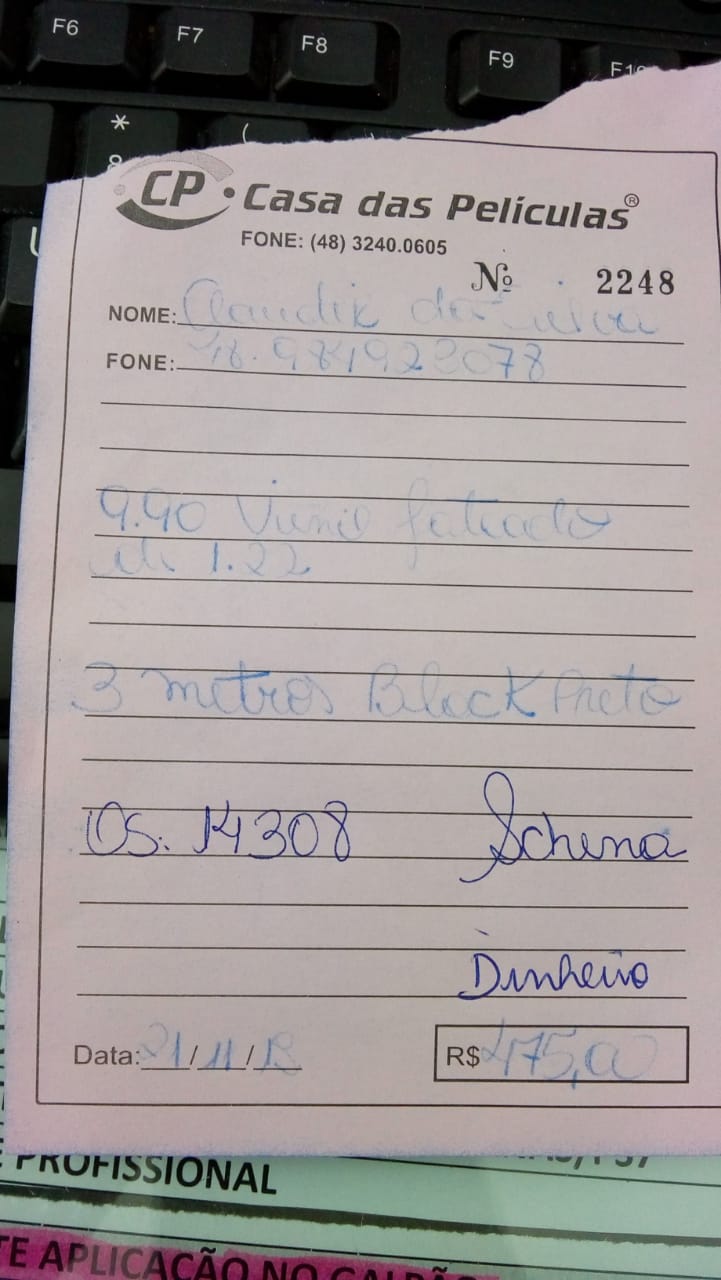 F6 F7 F8 F9 F10
* (
8
CP · Casa das Películas®
FONE: (48) 3240.0605
Nº 2248
NOME: Claudir da Silva
FONE: 48. 984923078
9.90 Vinil fateado
de 1.22
3 metros Black Preto
OS: 14308 Schena
Dinheiro
Data: 21/11/18 R$ 475,00
PROFISSIONAL
TE APLICAÇÃO NO GALPÃO